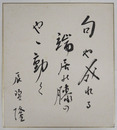 句や成れる
端居の膝の
やゝ動く